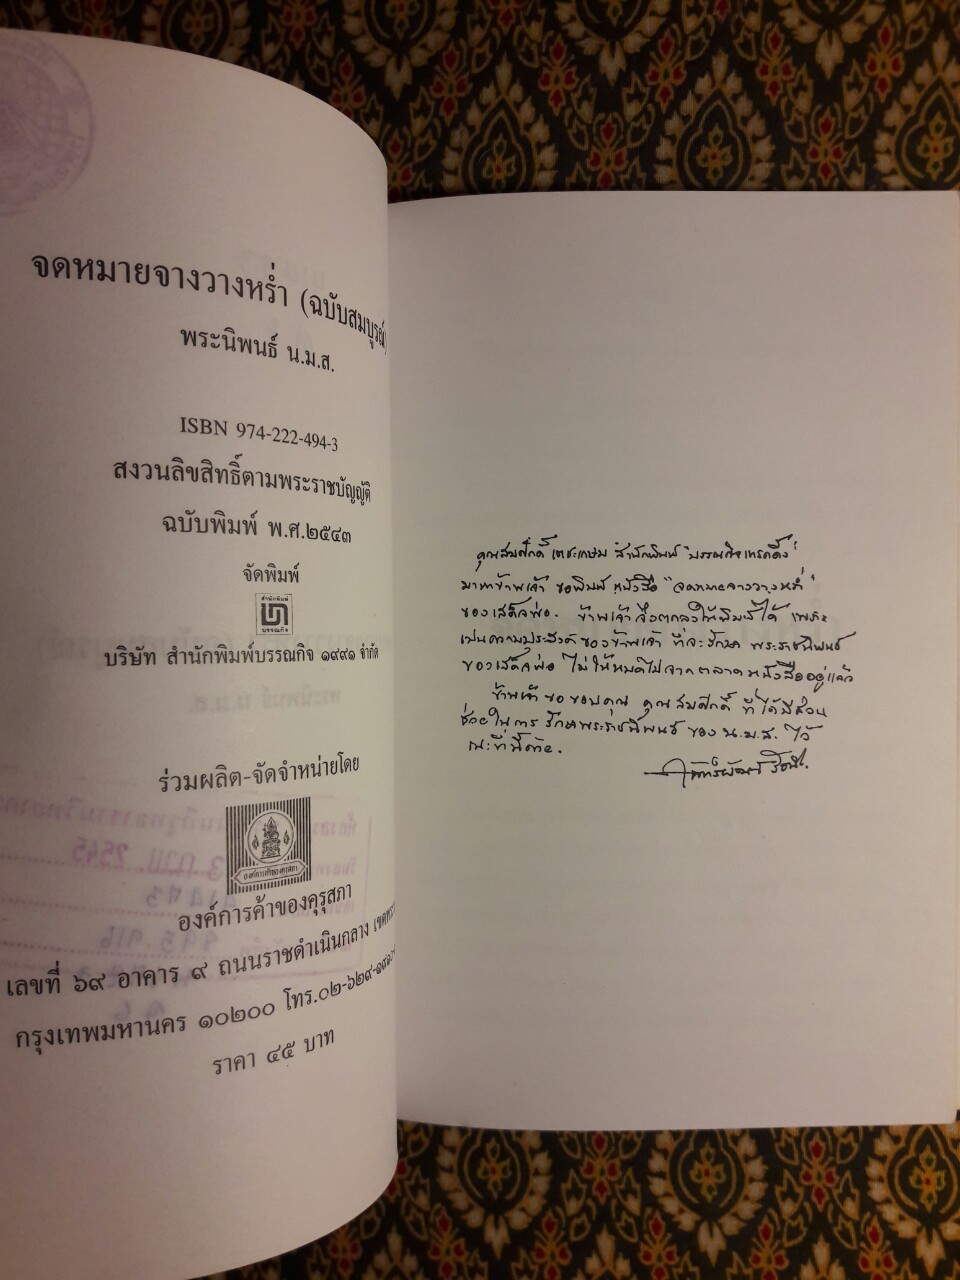 จดหมายจางวางหร่ำ (ฉบับสมบูรณ์)
พระนิพนธ์ น.ม.ส.
ISBN 974-222-494-3
สงวนลิขสิทธิ์ตามพระราชบัญญัติ
ฉบับพิมพ์ พ.ศ.๒๕๔๓
จัดพิมพ์
สำนักพิมพ์
บรรณกิจ
บริษัท สำนักพิมพ์บรรณกิจ ๑๙๙๑ จำกัด
ร่วมผลิต-จัดจำหน่ายโดย
องค์การค้าของคุรุสภา
องค์การค้าของคุรุสภา
เลขที่ ๖๙ อาคาร ๙ ถนนราชดำเนินกลาง
กรุงเทพมหานคร ๑๐๒๐๐ โทร.๐๒-๖๒๙-
ราคา ๔๕ บาท
คุณสมศักดิ์ เตชะเกษม สำนักพิมพ์ "บรรณกิจเทรดดิ้ง"
มาหาข้าพเจ้า ขอพิมพ์ หนังสือ "จดหมายจางวางหร่ำ"
ของเสด็จพ่อ. ข้าพเจ้า จึงตกลงให้พิมพ์ได้ เพราะ
เป็นความประสงค์ ของข้าพเจ้า ที่จะรักษา พระราชนิพนธ์
ของเสด็จพ่อ ไม่ให้หมดไปจาก ตลาดหนังสืออยู่แล้ว
ข้าพเจ้า ขอขอบคุณ คุณสมศักดิ์ ที่ได้มีส่วน
ช่วยในการ รักษาพระราชนิพนธ์ ของ น.ม.ส. ไว้
ณ ที่นี้ด้วย.